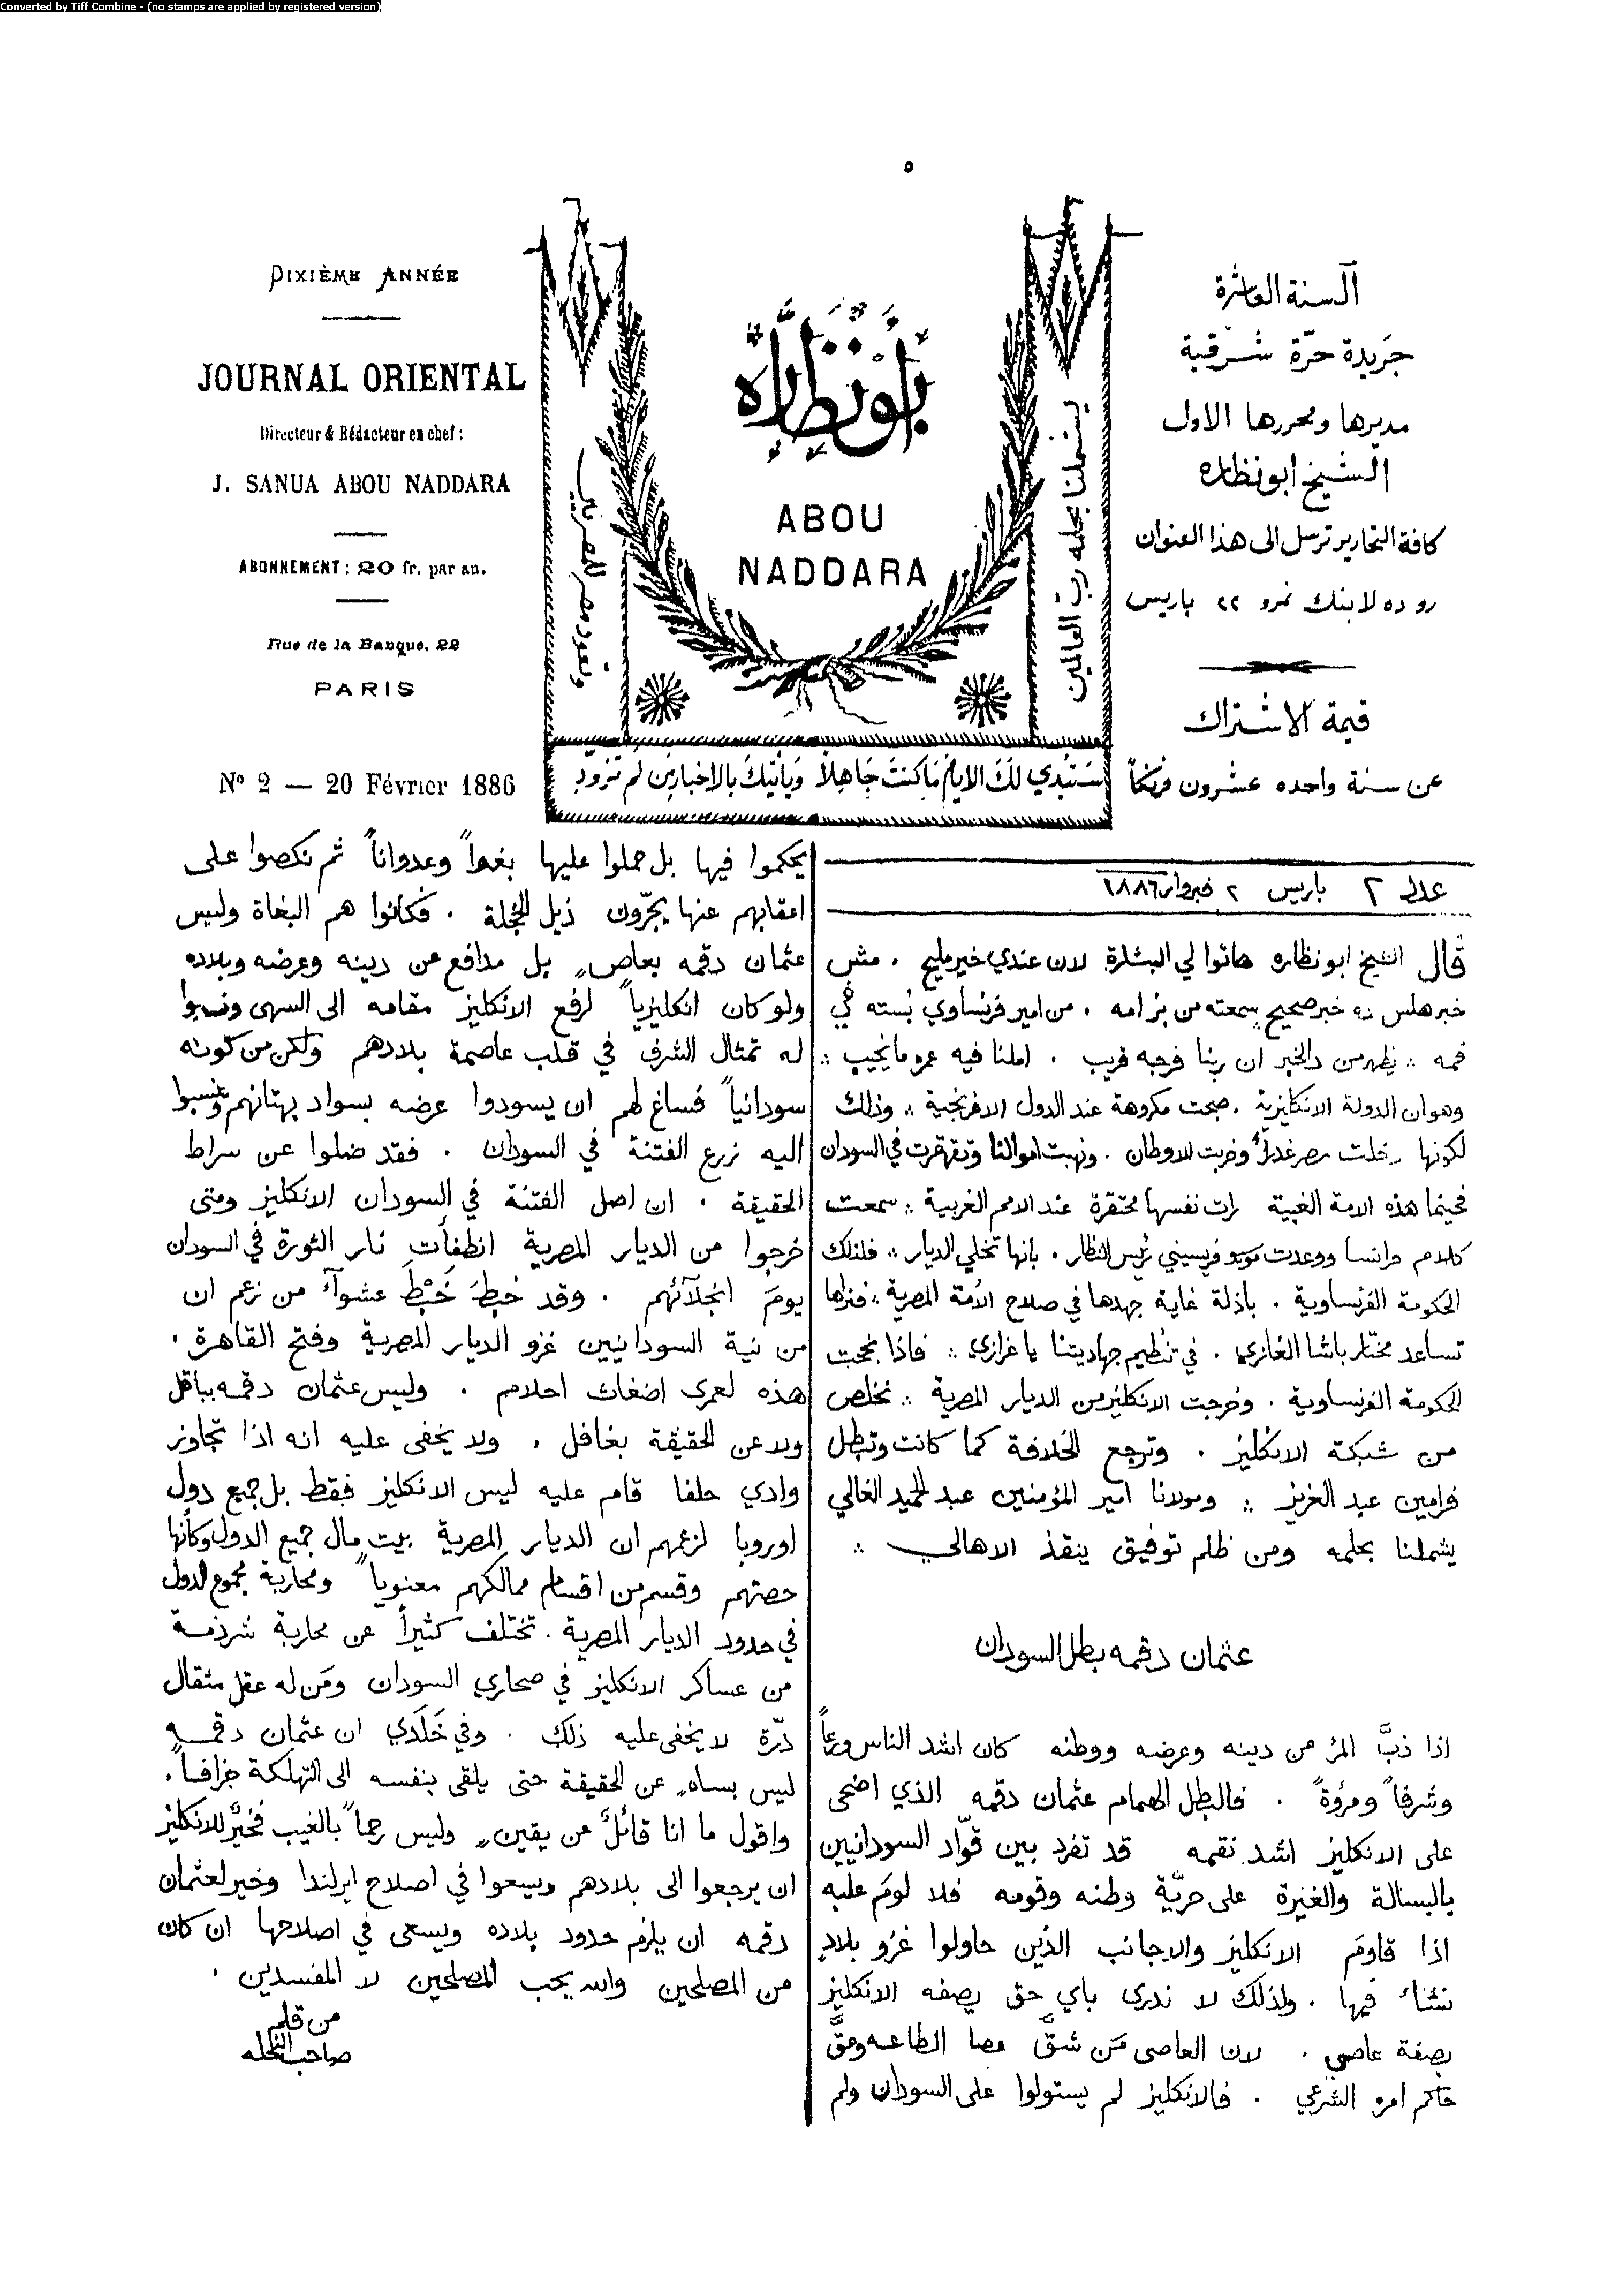 Converted by Tiff Combine - (no stamps are applied by registered version)
٥
DIXIÈME ANNÉE
JOURNAL ORIENTAL
Directeur & Rédacteur en chef :
J. SANUA ABOU NADDARA
ABONNEMENT : 20 fr. par an.
Rue de la Banque, 22
PARIS
Nº 2 — 20 Février 1886
ابو نظاره
ABOU
NADDARA
يشملنا بحلمه رب العالمين
وتعود مصر للمصريين
سَتُبْدِي لَكَ الايامُ مَا كنتَ جَاهِلاً وَيَأتيكَ بالاخبار مَن لم تزوّدِ
السنة العاشرة
جَريدة حرّة شرقية
مديرها ومحررها الاول
الشيخ ابو نظاره
كافة التحارير ترسل الى هذا العنوان
رو ده لا بنك نمرو ٢٢ پاريس
قيمة الاشتراك
عن سنة واحده عشرون فرنكاً
عدد ٢ باريس ٢٠ فبروار ١٨٨٦
قال الشيخ ابو نظاره هاتوا لي البشارة لان عندي خبر مليح . مش
خبر هلس ده خبر صحيح سمعته من بزّ امه . من امير فرنساوي بُسته في
فمه ∴ يظهر من دالخبر ان ربنا فرجه قريب . املنا فيه عمره ما يخيب ∴
وهو ان الدولة الانكليزية . صبحت مكروهة عند الدول الافرنجية ∴ وذلك
لكونها دخلت مصر غدراً وخربت الاوطان . ونهبت اموالنا وتقهقرت في السودان
فحينما هذه الامة الغبية رات نفسها محتقرة عند الامم الغربية ∴ سمعت
كلام فرانسا ووعدت موسيو فريسيني رئيس النظار . بانها تخلي الديار ∴ فلذلك
الحكومة الفرنساوية . باذلة غاية جهدها في صلاح الاُمّة المصرية ∴ فنراها
تساعد مختار باشا الغازي . في تنظيم جهاديتنا يا عرازي ∴ فاذا نجحت
الحكومة الفرنساوية . وخرجت الانكليز من الديار المصرية ∴ نخلص
من شبكة الانكليز . وترجع الخلافة كما كانت وتبطل
فرامين عبد العزيز ∴ ومولانا امير المؤمنين عبد الحميد الغالي
يشملنا بحلمه ومن ظلم توفيق ينقذ الاهالي ∴
عثمان دقمه بطل السودان
اذا ذبَّ المرُ عن دينه وعرضه ووطنه كان اشد الناس ورعاً
وشرفاً ومروُةً . فالبطل الهمام عثمان دقمه الذي اضحى
على الانكليز اشد نقمه قد تفرد بين قوّاد السودانيين
بالبسالة والغيرة على حريّة وطنه وقومه فلا لومَ عليه
اذا قاومَ الانكليز والاجانب الذين حاولوا غزو بلادٍ
نشاءَ فيها . ولذلك لا ندرى باي حق يصفه الانكليز
بصفة عاصي . لان العاصى مَن شقَّ عصا الطاعه وعقَّ
حاكم امره الشرعي . فالانكليز لم يستولوا على السودان ولم
يحكموا فيها بل حملوا عليها بغياً وعدواناً ثم نكصوا على
اعقابهم عنها يجرّون ذيل الخجلة . فكانوا هم البغاة وليس
عثمان دقمه بعاصٍ بل مدافع عن دينه وعرضه وبلاده
ولو كان انكليزياً لرفع الانكليز مقامه الى السهى ونصبوا
له تمثال الشرف في قلب عاصمة بلادهم ولكن من كونه
سودانياً فساغ لهم ان يسودوا عرضه بسواد بهتانهم وينسبوا
اليه زرع الفتنة في السودان . فقد ضلوا عن سراط
الحقيقة . ان اصل الفتنة في السودان الانكليز ومتى
خرجوا من الديار المصرية انطفأت نار الثورة في السودان
يومَ انجلآئهم . وقد خبطَ خَبْطَ عشوآءَ من زعم ان
من نية السودانيين غزو الديار المصرية وفتح القاهرة .
هذه لعمرى اضغاث احلام . وليس عثمان دقمه بباقل
ولا عن الحقيقة بغافل . ولا يخفى عليه انه اذا تجاوز
وادي حلفا قام عليه ليس الانكليز فقط بل جميع دول
اوروبا لزعمهم ان الديار المصرية بيت مال جميع الدول وكأنها
حصتهم وقسم من اقسام ممالكهم معنوياً ومحاربة مجموع الدول
في حدود الديار المصرية . تختلف كثيراً عن محاربة شرذمة
من عساكر الانكليز في صحاري السودان ومَن له عقل مثقال
ذرّة لا يخفى عليه ذلك . وفي خَلَدي ان عثمان دقمه
ليس بساهٍ عن الحقيقة حتى يلقى بنفسه الى التهلكة جزافاً .
واقول ما انا قائلٌ عن يقينٍ وليس رجماً بالغيب فخيرٌ للانكليز
ان يرجعوا الى بلادهم ويسعوا في اصلاح ايرلندا وخير لعثمان
دقمه ان يلزم حدود بلاده ويسعى في اصلاحها ان كان
من المصلحين والله يحب المصلحين لا المفسدين .
من قلم
صاحب النحله